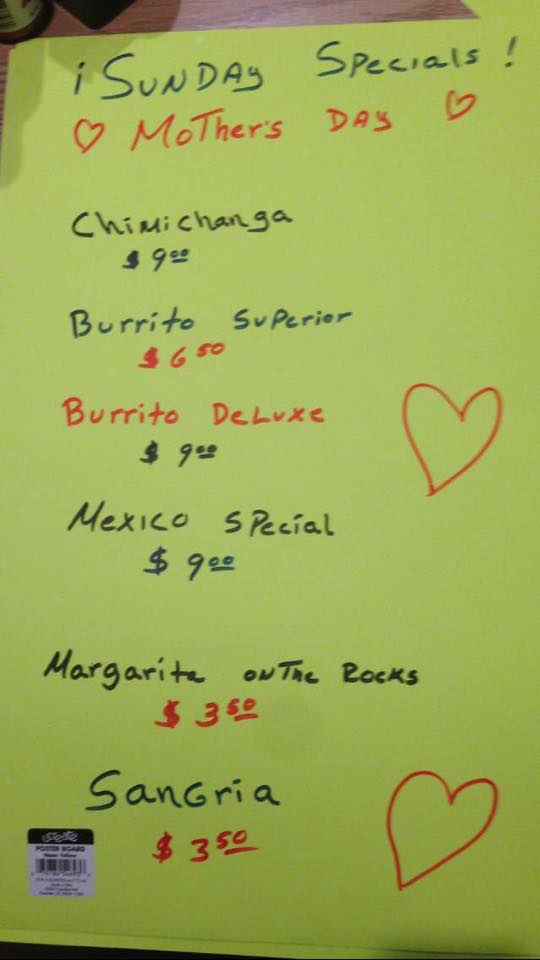 ¡ SUNDAY Specials !
♡ MoTher's DAY ♡
Chimichanga
$ 9.00
Burrito Superior
$ 6.50
Burrito DeLuxe
$ 9.00
Mexico Special
$ 9.00
Margarita on The Rocks
$ 3.50
SanGria
$ 3.50
POSTER BOARD